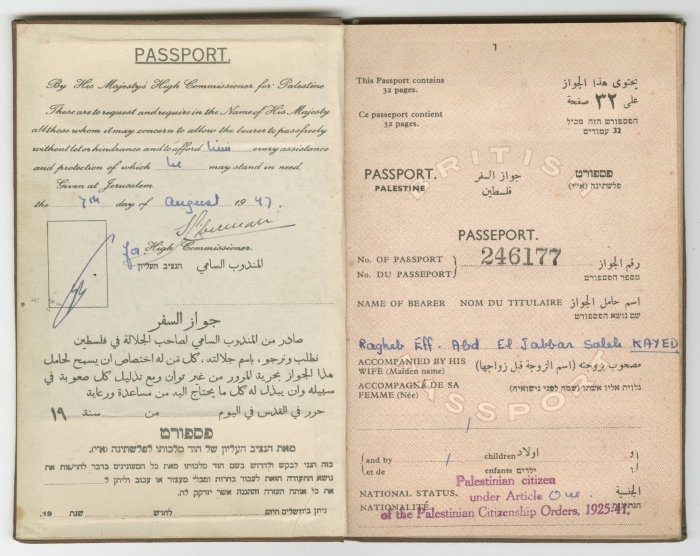 PASSPORT.
By His Majesty's High Commissioner for Palestine
These are to request and require in the Name of His Majesty
all those whom it may concern to allow the bearer to pass freely
without let or hindrance and to afford him every assistance
and protection of which he may stand in need.
Given at Jerusalem
the 7th day of August 1947.
for High Commissioner.
المندوب السامي הנציב העליון
جواز السفر
صادر من المندوب السامي لصاحب الجلالة في فلسطين
نطلب ونرجو، باسم جلالته، كل من له اختصاص ان يسمح لحامل
هذا الجواز بحرية المرور من غير توان ومع تذليل كل صعوبة في
سبيله وان يبذل له كل ما يحتاج اليه من مساعدة ورعاية
حرر في القدس في اليوم من سنة ١٩
פספורט
מאת הנציב העליון של הוד מלכותו לפלשתינה (א״י).
בזה הנני לבקש ולדרוש בשם הוד מלכותו מאת כל המעונינים בדבר להרשות את
נושא התעודה הזאת לעבור בחרות ומבלי מעצור או עכוב וליתן ל
את כי אותה העזרה וההגנה אשר יזדקק לה.
ניתן בירושלים היום לחדש שנת 19
1
This Passport contains
32 pages.
يحتوي هذا الجواز
على ٣٢ صفحة
Ce passeport contient
32 pages.
הפספורט הזה מכיל
32 עמודים
BRITISH
PASSPORT
PASSPORT. جواز السفر פספורט
PALESTINE فلسطين פלשתינה (א״י)
PASSEPORT.
No. OF PASSPORT رقم الجواز
No. DU PASSEPORT 246177 מספר הפספורט
NAME OF BEARER NOM DU TITULAIRE اسم حامل الجواز
שם נושא הפספורט
Ragheb Eff. Abd El Jabbar Saleh KAYED
ACCOMPANIED BY HIS
WIFE (Maiden name) مصحوب بزوجته (اسم الزوجة قبل زواجها)
ACCOMPAGNÉ DE SA
FEMME (Née) נלוית אליו אשתו (שמה לפני נישואיה)
and by children اولاد و
et de enfants ילדים ו
Palestinian citizen
NATIONAL STATUS. under Article One. الجنسية
NATIONALITÉ הנתינות
of the Palestinian Citizenship Orders, 1925-41.